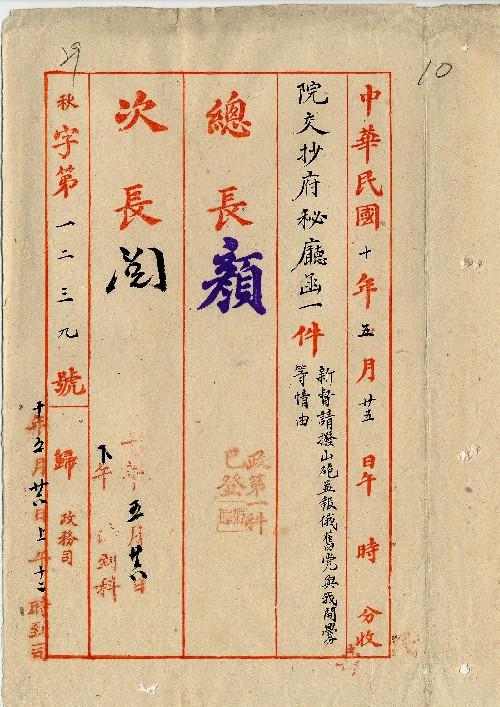 10
中華民國十年五月廿五日午 時 分收
院交抄府秘廳函一件
新督請撥山砲並報俄舊党與我開釁
等情由
總長顏
政第一科
已登
次長閻
十年五月廿六日
下午 到科
秋字第一二三九號 歸政務司
十年五月廿六日上午十二時到司